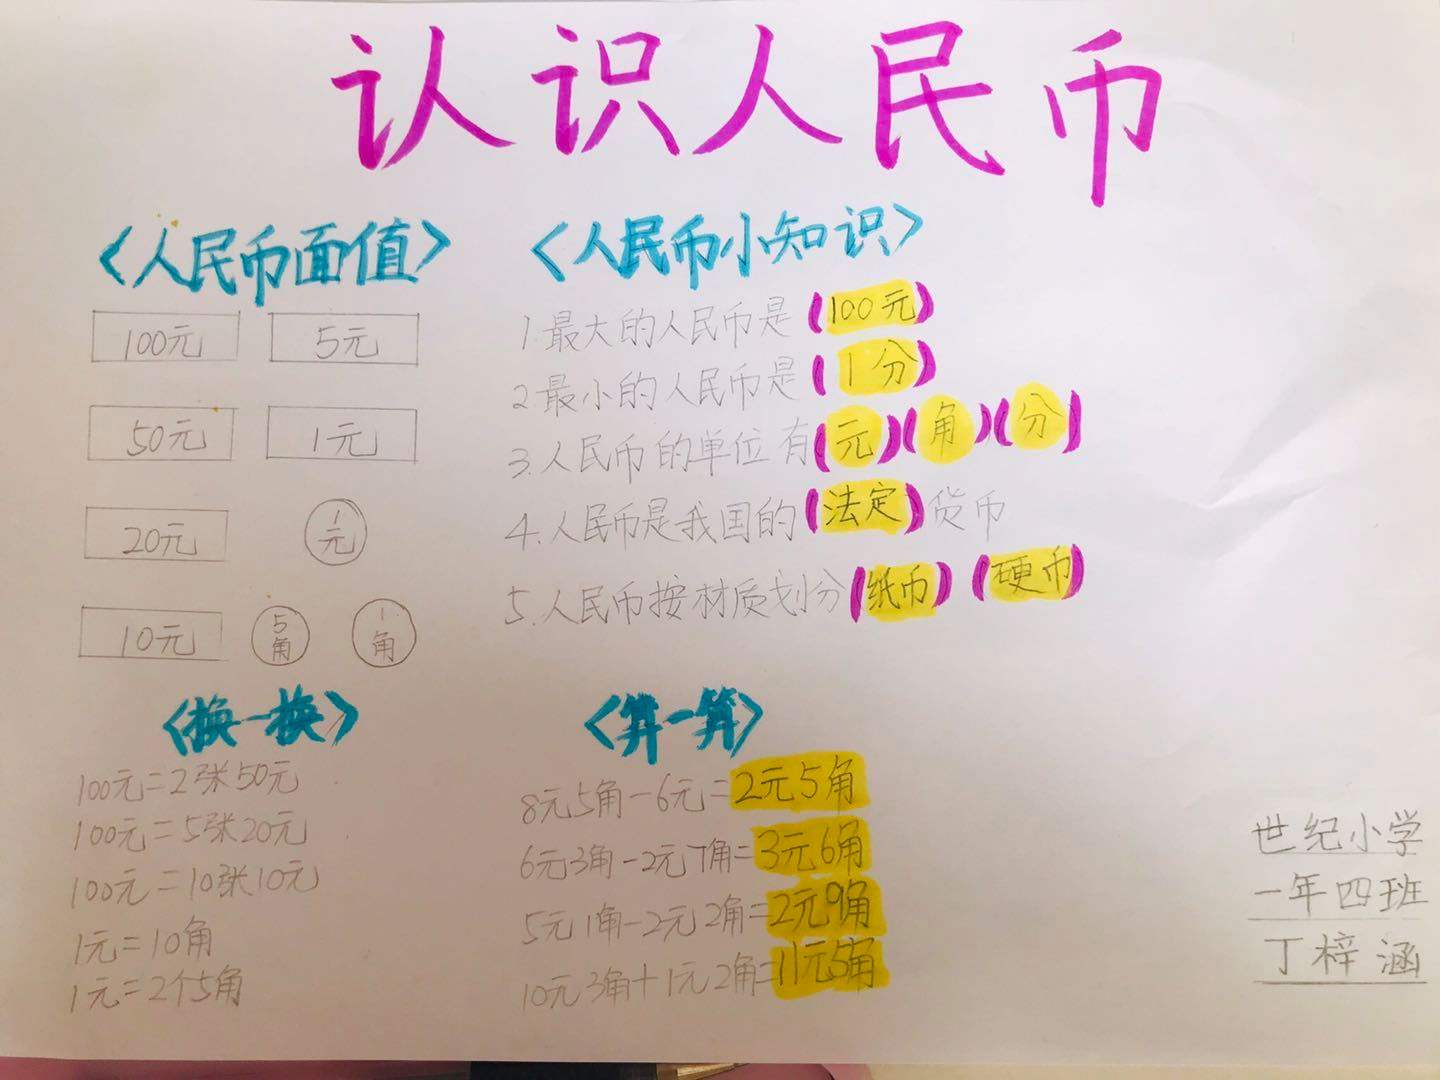 认识人民币
<人民币面值>
100元 5元
50元 1元
20元 1元
10元 5角 1角
<人民币小知识>
1.最大的人民币是(100元)
2.最小的人民币是(1分)
3.人民币的单位有(元)(角)(分)
4.人民币是我国的(法定)货币
5.人民币按材质划分(纸币)(硬币)
<换一换>
100元=2张50元
100元=5张20元
100元=10张10元
1元=10角
1元=2个5角
<算一算>
8元5角-6元=2元5角
6元3角-2元7角=3元6角
5元1角-2元2角=2元9角
10元3角+1元2角=11元5角
世纪小学
一年四班
丁梓涵